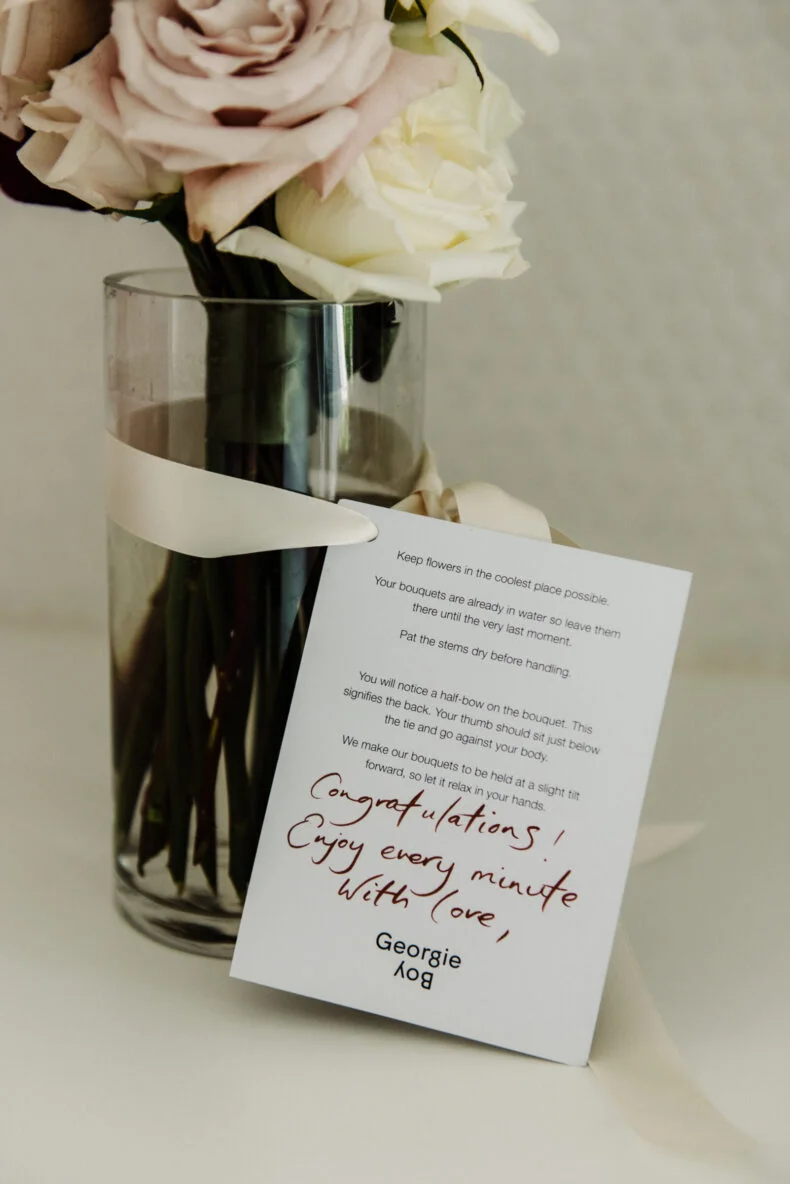 Keep flowers in the coolest place possible.
Your bouquets are already in water so leave them
there until the very last moment.
Pat the stems dry before handling.
You will notice a half-bow on the bouquet. This
signifies the back. Your thumb should sit just below
the tie and go against your body.
We make our bouquets to be held at a slight tilt
forward, so let it relax in your hands.
Congratulations!
Enjoy every minute
With love,
Georgie
Boy